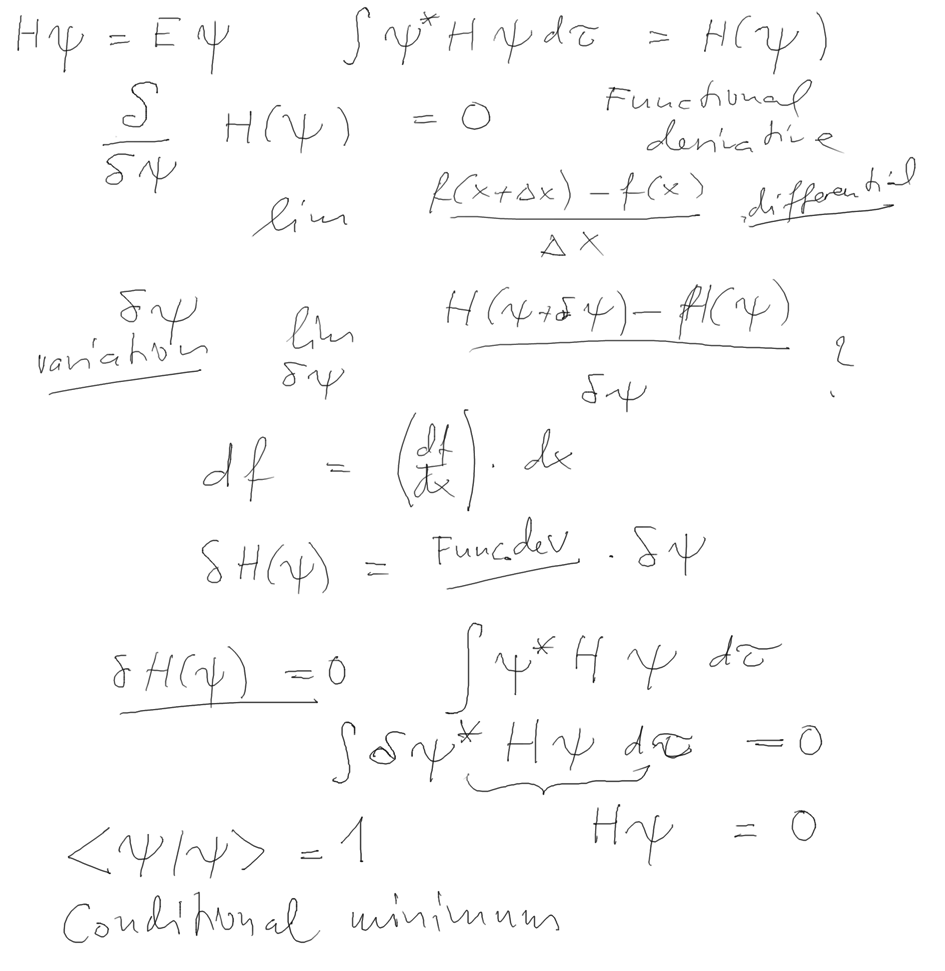 Hψ = Eψ ∫ψ* H ψ dτ = H(ψ)
δ/δψ H(ψ) = 0 Functional derivative
lim (f(x+Δx) - f(x))/Δx differential
δψ variation lim δψ (H(ψ+δψ) - H(ψ))/δψ ?
df = (df/dx) · dx
δH(ψ) = Func.dev · δψ
δH(ψ) = 0 ∫ψ* H ψ dτ
∫δψ* Hψ dτ = 0
Hψ = 0
<ψ|ψ> = 1
Conditional minimum